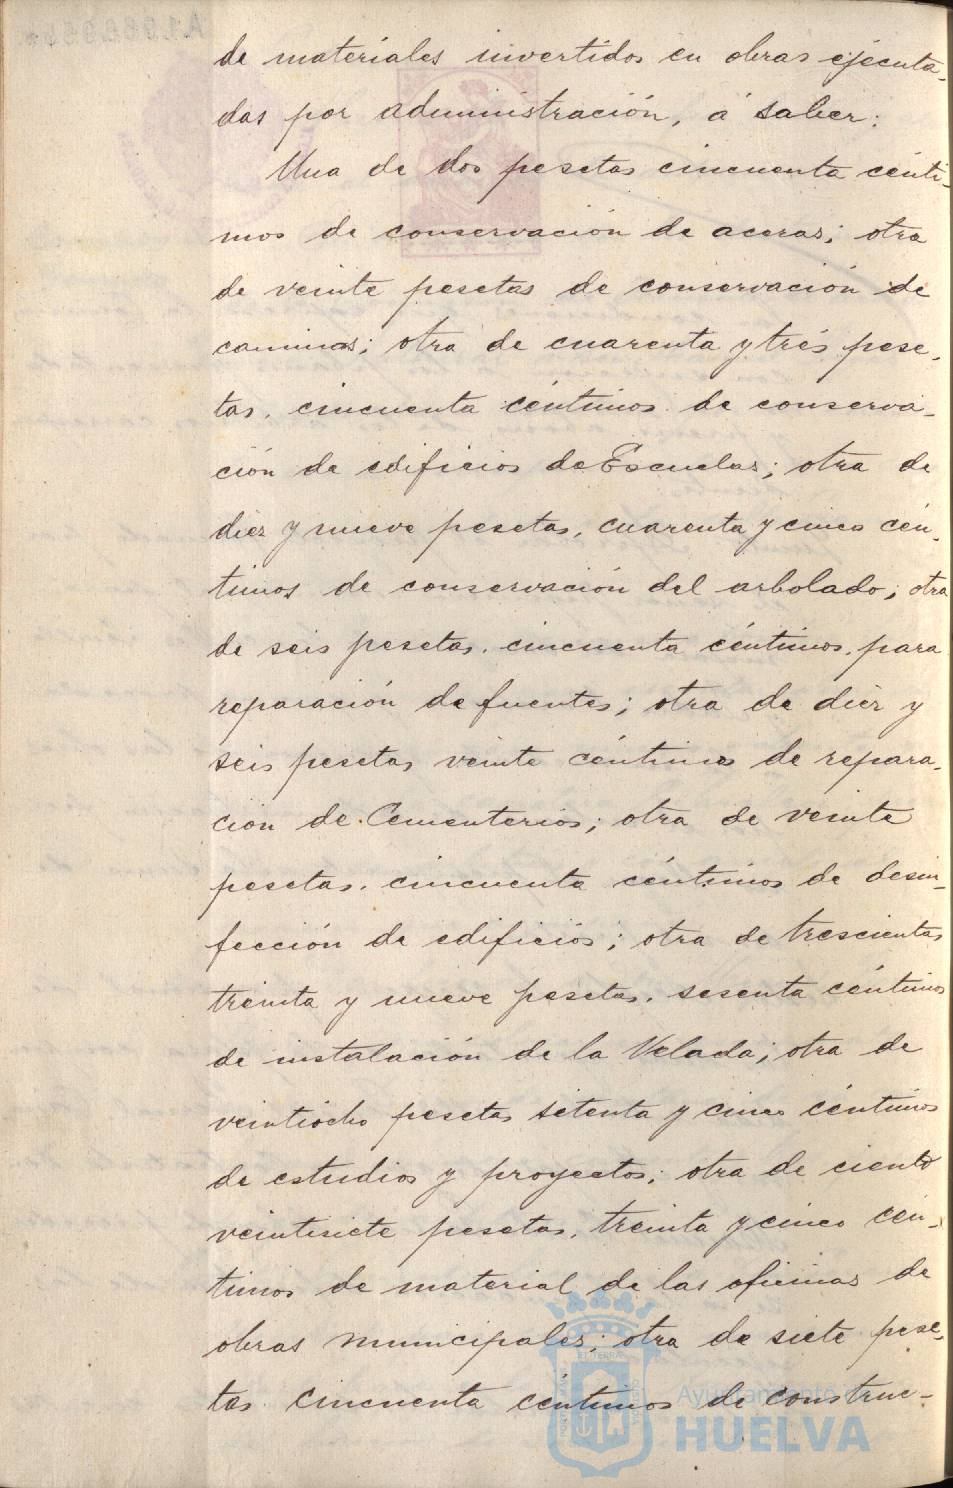 de materiales invertidos en obras ejecuta-
das por administración, á saber:
Una de dos pesetas cincuenta cénti-
mos de conservación de aceras; otra
de veinte pesetas de conservación de
caminos; otra de cuarenta y trés pese-
tas, cincuenta céntimos de conserva-
ción de edificios de Escuelas; otra de
diez y nueve pesetas, cuarenta y cinco cén-
timos de conservación del arbolado; otra
de seis pesetas, cincuenta céntimos, para
reparación de fuentes; otra de diez y
seis pesetas veinte céntimos de repara-
ción de Cementerios; otra de veinte
pesetas, cincuenta céntimos de desin-
fección de edificios; otra de trescientas
treinta y nueve pesetas, sesenta céntimos
de instalación de la Velada; otra de
veintiocho pesetas setenta y cinco céntimos
de estudios y proyectos; otra de ciento
veintisiete pesetas, treinta y cinco cén-
timos de material de las oficinas de
obras municipales; otra de siete pese-
tas cincuenta céntimos de construc-
Ayuntamiento
HUELVA